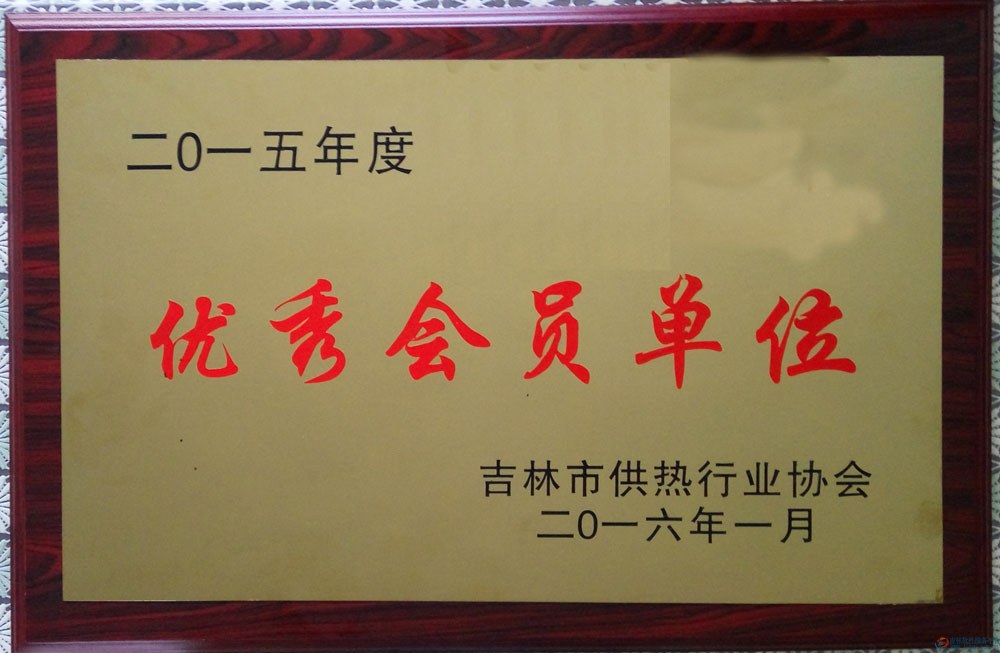 二0一五年度
优秀会员单位
吉林市供热行业协会
二0一六年一月